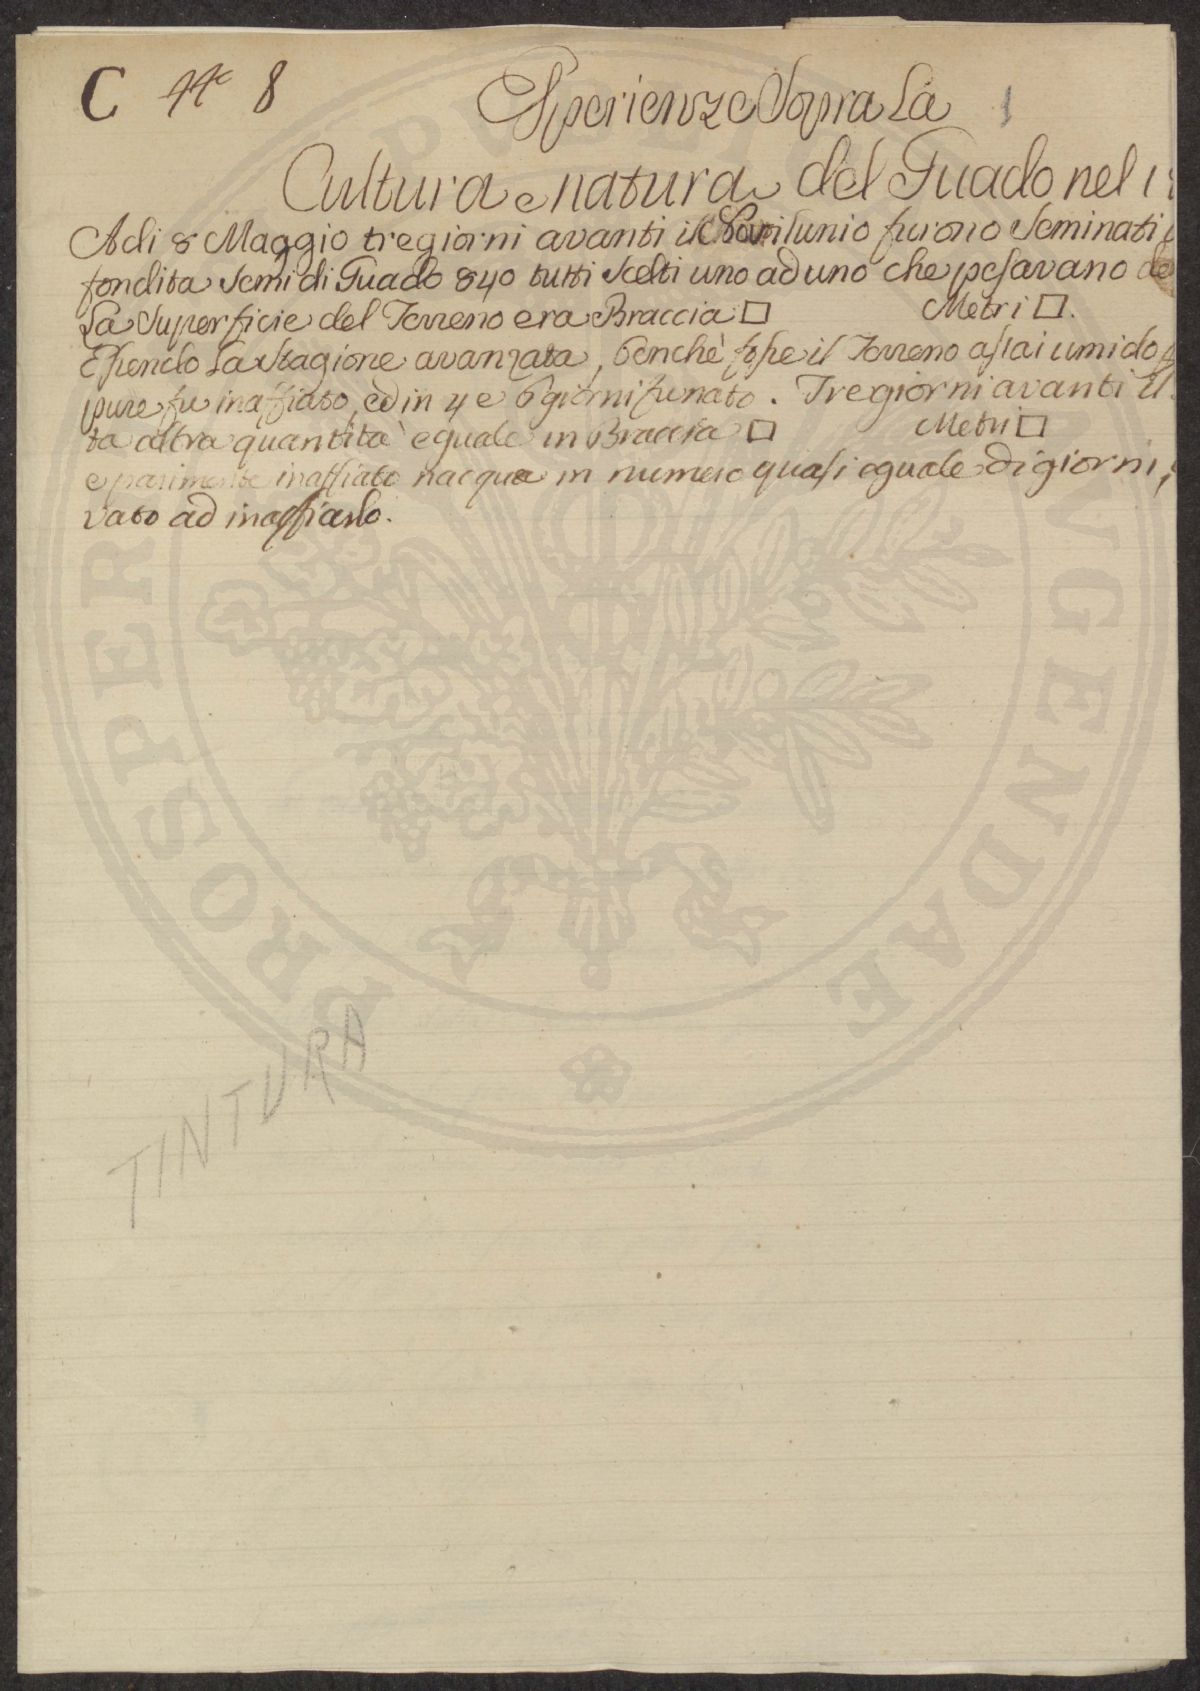 C N.° 8
Esperienze Sopra La 1
Cultura e natura del Guado nel 1
Adi 8 Maggio tre giorni avanti il Novilunio furono Seminati
fondita Semi di Guado 840 tutti Scelti uno ad uno che pesavano de
La Superficie del Terreno era Braccia □ Metri □.
Essendo La Stagione avanzata, benchè fosse il Terreno assai umido,
pure fu inaffiato, ed in 4 e 6 giorni fu nato. Tre giorni avanti il
ta altra quantità eguale in Braccia □ Metri □
e parimente inaffiato nacque in numero quasi eguale di giorni,
vato ad inaffiarlo.
PROSPER PUBLICAE AUGENDAE
TINTURA